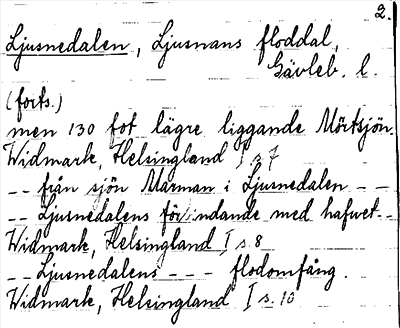 2.
Ljusnedalen, Ljusnans floddal,
Gävleb. l.
(forts.)
men 130 fot lägre liggande Mörtsjön.
Widmark, Helsingland I s. 7
-- från sjön Marman i Ljusnedalen --
-- Ljusnedalens förbindande med hafvet --
Widmark, Helsingland I s. 8
-- Ljusnedalens --- flodomfång.
Widmark, Helsingland I s. 10